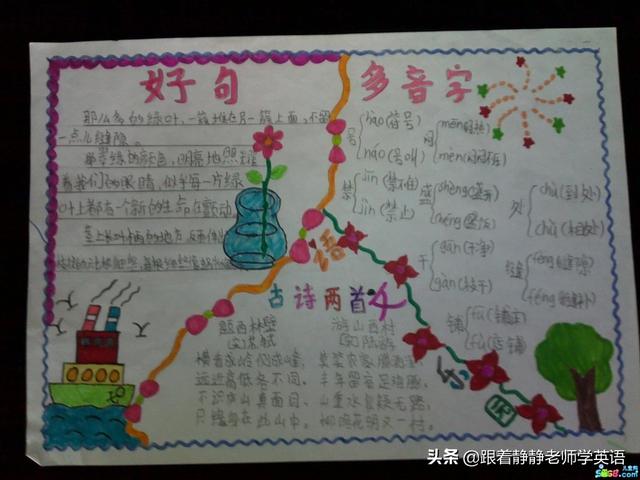 好句
那么多的绿叶，一簇堆在另一簇上面，不留
一点儿缝隙。
翠绿的颜色，明亮地照耀
着我们的眼睛，似乎每一片绿
叶上都有一个新的生命在颤动
茎上长叶柄的地方，反面伸出
多音字
号 háo(号叫)
闷 mēn(闷热)
mèn(闷闷不乐)
禁 jīn(禁不住)
jìn(禁止)
盛 shèng(盛开)
chéng(盛饭)
处 chù(到处)
chǔ(相处)
干 gān(干净)
gàn(枝干)
缝 fèng(缝隙)
féng(缝补)
铺 pū(铺子)
pù(店铺)
语
古诗两首
题西林壁
(宋)苏轼
横看成岭侧成峰，
远近高低各不同。
不识庐山真面目，
只缘身在此山中。
游山西村
(宋)陆游
莫笑农家腊酒浑，
丰年留客足鸡豚。
山重水复疑无路，
柳暗花明又一村。
乐
园
头条 @跟着静静老师学英语